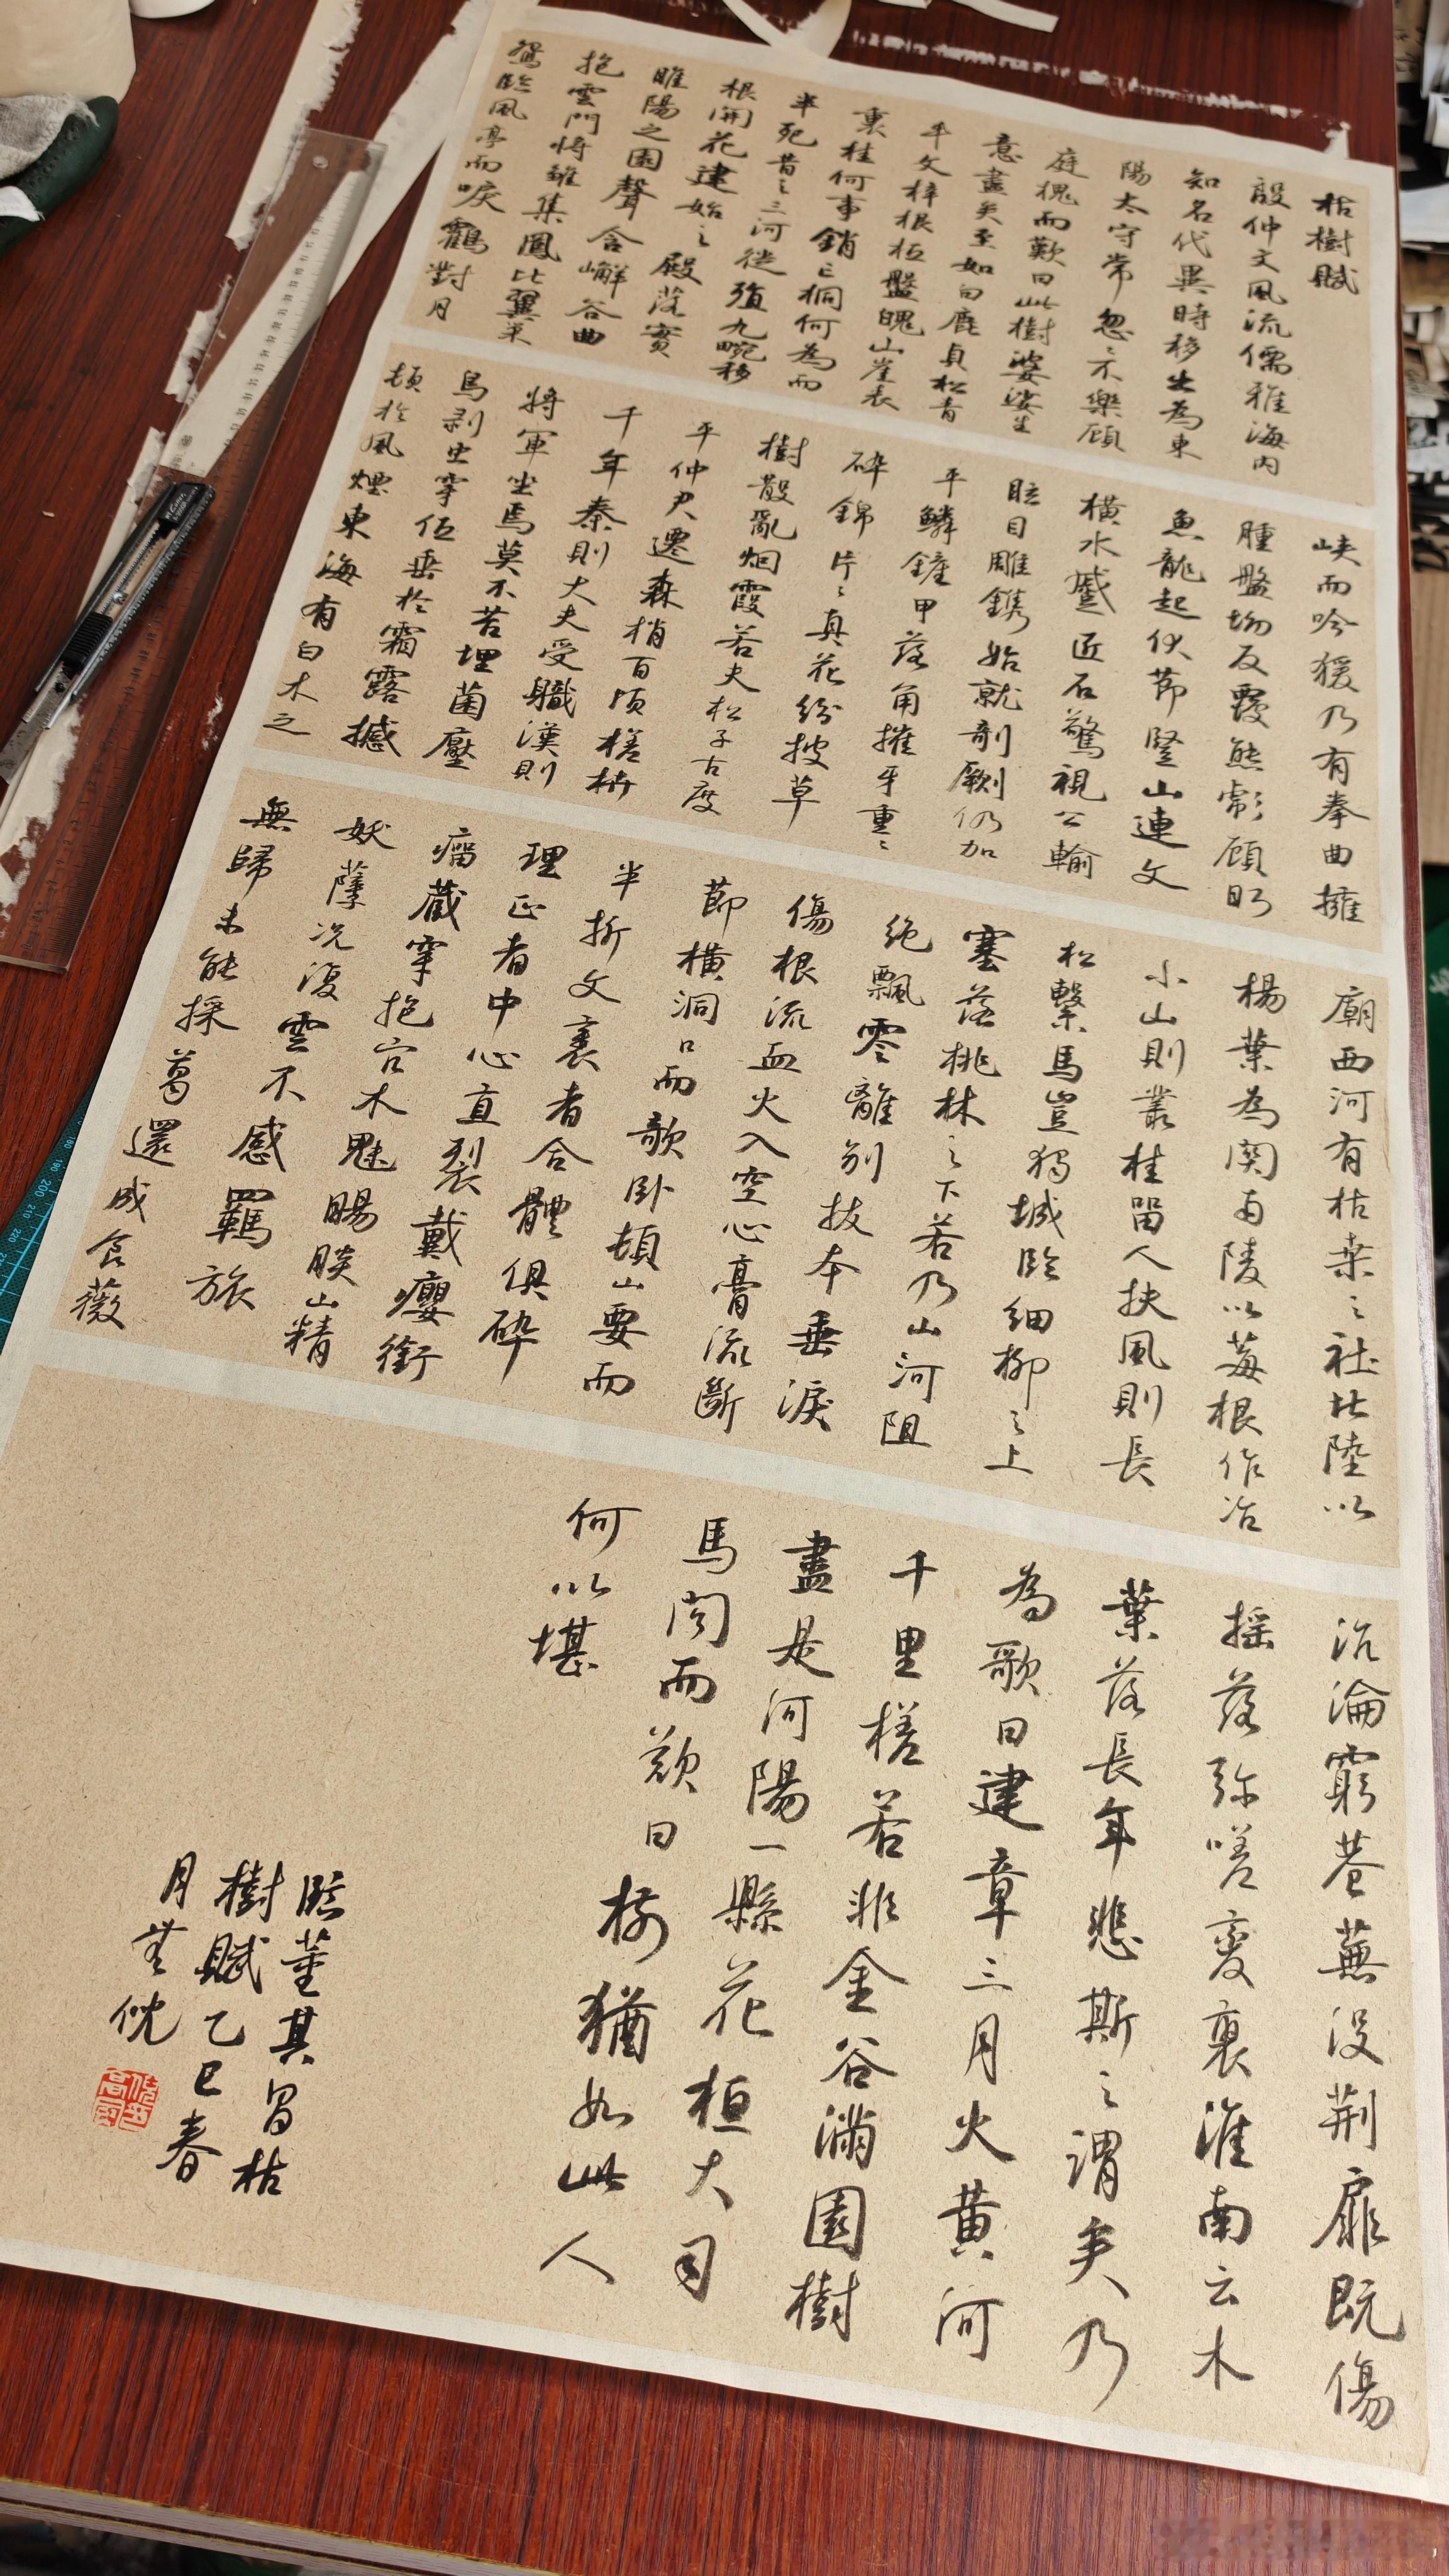 枯樹賦
殷仲文風流儒雅海內
知名代異時移出為東
陽太守常忽忽不樂顧
庭槐而歎曰此樹婆娑生
意盡矣至如白鹿貞松青
牛文梓根柢盤魄山崖表
裏桂何事銷亡桐何為而
半死昔之三河徙殖九畹移
根開花建始之殿落實
睢陽之園聲含嶰谷曲
抱雲門將雛集鳳比翼巢
鴛臨風亭而唳鶴對月
峽而吟猨乃有拳曲擁
腫盤坳反覆熊彪顧盼
魚龍起伏節豎山連文
橫水蹙匠石驚視公輸
眩目雕鐫始就剞劂仍加
平鱗鏟甲落角摧牙重重
碎錦片片真花紛披草
樹散亂烟霞若夫松子古度
平仲君遷森梢百頃槎枿
千年秦則大夫受職漢則
將軍坐焉莫不苔埋菌壓
鳥剥虫穿低垂於霜露撼
頓於風煙東海有白木之
廟西河有枯桑之社北陸以
楊葉為關南陵以莓根作冶
小山則叢桂留人扶風則長
松繫馬豈獨城臨細柳之上
塞落桃林之下若乃山河阻
絶飄零離别拔本垂淚
傷根流血火入空心膏流斷
節橫洞口而歌卧頓山要而
半折文裹者合體俱碎
理正者中心直裂戴癭銜
瘤藏穿抱穴木魅賜睒山精
妖孽况復雲不感羈旅
無歸未能採葛還成食薇
沉淪窮巷蕪没荆扉既傷
搖落弥嗟變衰淮南云木
葉落長年悲斯之謂矣乃
為歌曰建章三月火黃河
千里槎若非金谷滿園樹
盡是河陽一縣花桓大司
馬聞而歎曰樹猶如此人
何以堪
臨董其昌枯
樹賦乙巳春
月